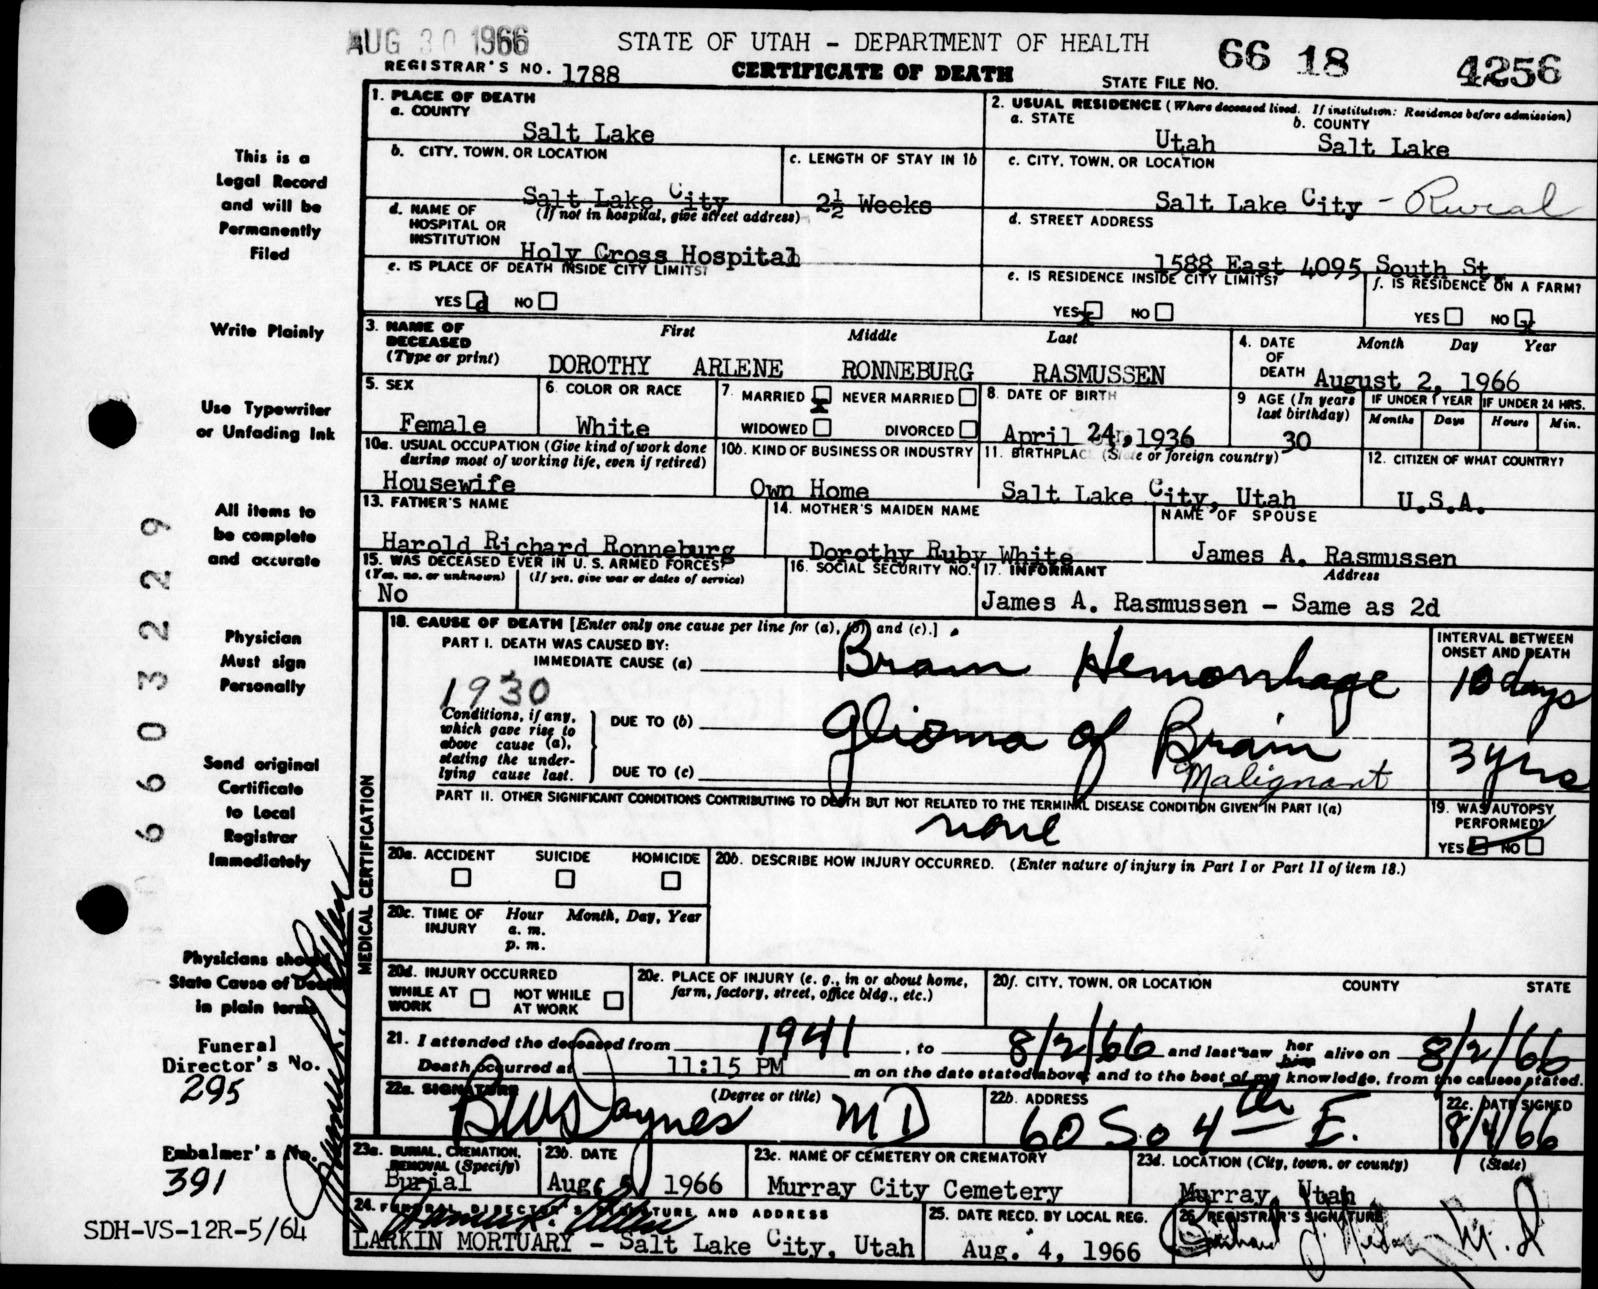 AUG 30 1966
STATE OF UTAH - DEPARTMENT OF HEALTH
66 18 4256
REGISTRAR'S NO. 1788
CERTIFICATE OF DEATH
STATE FILE NO.
This is a
Legal Record
and will be
Permanently
Filed
Write Plainly
Use Typewriter
or Unfading Ink
All items to
be complete
and accurate
Physician
Must sign
Personally
Send original
Certificate
to Local
Registrar
Immediately
Physicians should
State Cause of Death
in plain terms
Funeral
Director's No.
295
Embalmer's No.
391
SDH-VS-12R-5/64
6603229
1. PLACE OF DEATH
a. COUNTY
Salt Lake
b. CITY, TOWN, OR LOCATION
Salt Lake City
c. LENGTH OF STAY IN 1b
2½ Weeks
d. NAME OF HOSPITAL OR INSTITUTION
(If not in hospital, give street address)
Holy Cross Hospital
e. IS PLACE OF DEATH INSIDE CITY LIMITS?
YES NO
2. USUAL RESIDENCE (Where deceased lived. If institution: Residence before admission)
a. STATE
Utah
b. COUNTY
Salt Lake
c. CITY, TOWN, OR LOCATION
Salt Lake City - Rural
d. STREET ADDRESS
1588 East 4095 South St.
e. IS RESIDENCE INSIDE CITY LIMITS?
YES NO
f. IS RESIDENCE ON A FARM?
YES NO
3. NAME OF DECEASED
(Type or print)
First Middle Last
DOROTHY ARLENE RONNEBURG RASMUSSEN
4. DATE OF DEATH
Month Day Year
August 2, 1966
5. SEX
Female
6. COLOR OR RACE
White
7. MARRIED NEVER MARRIED
WIDOWED DIVORCED
8. DATE OF BIRTH
April 24, 1936
9 AGE (In years last birthday)
30
IF UNDER 1 YEAR IF UNDER 24 HRS.
Months Days Hours Min.
10a. USUAL OCCUPATION (Give kind of work done
during most of working life, even if retired)
Housewife
10b. KIND OF BUSINESS OR INDUSTRY
Own Home
11. BIRTHPLACE (State or foreign country)
Salt Lake City, Utah
12. CITIZEN OF WHAT COUNTRY?
U.S.A.
13. FATHER'S NAME
Harold Richard Ronneburg
14. MOTHER'S MAIDEN NAME
Dorothy Ruby White
NAME OF SPOUSE
James A. Rasmussen
15. WAS DECEASED EVER IN U. S. ARMED FORCES?
(Yes, no, or unknown) (If yes, give war or dates of service)
No
16. SOCIAL SECURITY NO.
17. INFORMANT Address
James A. Rasmussen - Same as 2d
MEDICAL CERTIFICATION
18. CAUSE OF DEATH [Enter only one cause per line for (a), (b) and (c).]
INTERVAL BETWEEN
ONSET AND DEATH
PART I. DEATH WAS CAUSED BY:
IMMEDIATE CAUSE (a) Brain Hemorrhage 10 days
1930
Conditions, if any,
which gave rise to
above cause (a),
stating the under-
lying cause last.
DUE TO (b) Glioma of Brain 3 yrs
DUE TO (c) Malignant
PART II. OTHER SIGNIFICANT CONDITIONS CONTRIBUTING TO DEATH BUT NOT RELATED TO THE TERMINAL DISEASE CONDITION GIVEN IN PART I(a)
none
19. WAS AUTOPSY
PERFORMED?
YES NO
20a. ACCIDENT SUICIDE HOMICIDE
20b. DESCRIBE HOW INJURY OCCURRED. (Enter nature of injury in Part I or Part II of item 18.)
20c. TIME OF INJURY
Hour Month, Day, Year
a. m.
p. m.
20d. INJURY OCCURRED
WHILE AT WORK NOT WHILE AT WORK
20e. PLACE OF INJURY (e. g., in or about home,
farm, factory, street, office bldg., etc.)
20f. CITY, TOWN, OR LOCATION COUNTY STATE
21. I attended the deceased from 1941, to 8/2/66 and last saw her him alive on 8/2/66
Death occurred at 11:15 PM m on the date stated above; and to the best of my knowledge, from the causes stated.
22a. SIGNATURE (Degree or title)
MD
22b. ADDRESS
60 So 4th E.
22c. DATE SIGNED
8/4/66
23a. BURIAL, CREMATION,
REMOVAL (Specify)
Burial
23b. DATE
Aug 5, 1966
23c. NAME OF CEMETERY OR CREMATORY
Murray City Cemetery
23d. LOCATION (City, town, or county) (State)
Murray, Utah
24. FUNERAL DIRECTOR'S SIGNATURE AND ADDRESS
LARKIN MORTUARY - Salt Lake City, Utah
25. DATE RECD. BY LOCAL REG.
Aug. 4, 1966
26. REGISTRAR'S SIGNATURE